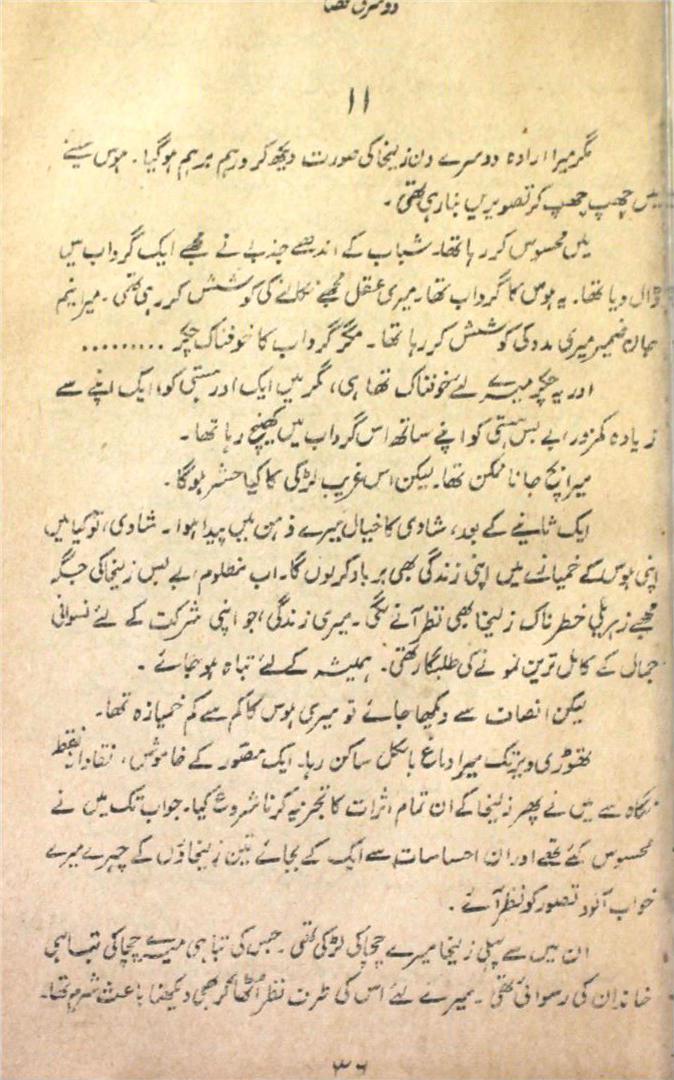 دوسری قضا
۱۱
مگر میرا ارادہ دوسرے دن زلیخا کی صورت دیکھ کر درہم برہم ہو گیا۔ ہوس سینے
میں چھپ چھپ کر تصویریں بنا رہی تھی۔
میں محسوس کر رہا تھا۔ شباب کے اندھے جذبے نے مجھے ایک گرداب میں
ڈال دیا تھا۔ یہ ہوس کا گرداب تھا۔ میری عقل مجھے نکالنے کی کوشش کر رہی تھی۔ میرا نیم
جاں ضمیر میری مدد کی کوشش کر رہا تھا۔ مگر گرداب کا خوفناک چکر .........
اور یہ چکر میرے لئے خوفناک تھا ہی، مگر میں ایک اور ہستی کو، ایک اپنے سے
زیادہ کمزور، بے بس ہستی کو اپنے ساتھ اس گرداب میں کھینچ رہا تھا۔
میرا بچ جانا ممکن تھا۔ لیکن اس غریب لڑکی کا کیا حشر ہوگا۔
ایک ثانیے کے بعد، شادی کا خیال میرے ذہن میں پیدا ہوا۔ شادی، تو کیا میں
اپنی ہوس کے خمیازے میں اپنی زندگی بھی برباد کرلوں گا۔ اب مظلوم، بے بس زلیخا کی جگہ
مجھے زہریلی خطرناک زلیخا بھی نظر آنے لگی۔ میری زندگی، جو اپنی شرکت کے لئے نسوانی
جمال کے کامل ترین نمونے کی طلبگار تھی۔ ہمیشہ کے لئے تباہ ہو جائے۔
لیکن انصاف سے دیکھا جائے تو میری ہوس کا کم سے کم خمیازہ تھا۔
تھوڑی دیر تک میرا دماغ بالکل ساکن رہا۔ ایک مصور کے خاموش، نقادانہ نقطہ
نگاہ سے میں نے پھر زلیخا کے ان تمام اثرات کا تجزیہ کرنا شروع کیا۔ جو اب تک میں نے
محسوس کئے تھے اور ان احساسات سے ایک کے بجائے تین زلیخاؤں کے چہرے میرے
خواب آلود تصور کو نظر آئے۔
ان میں سے پہلی زلیخا میرے چچا کی لڑکی تھی۔ جس کی تباہی میرے چچا کی تباہی
خاندان کی رسوائی تھی۔ میرے لئے اس کی طرف نظر اٹھا کر بھی دیکھنا باعث شرم تھا۔
۳۶